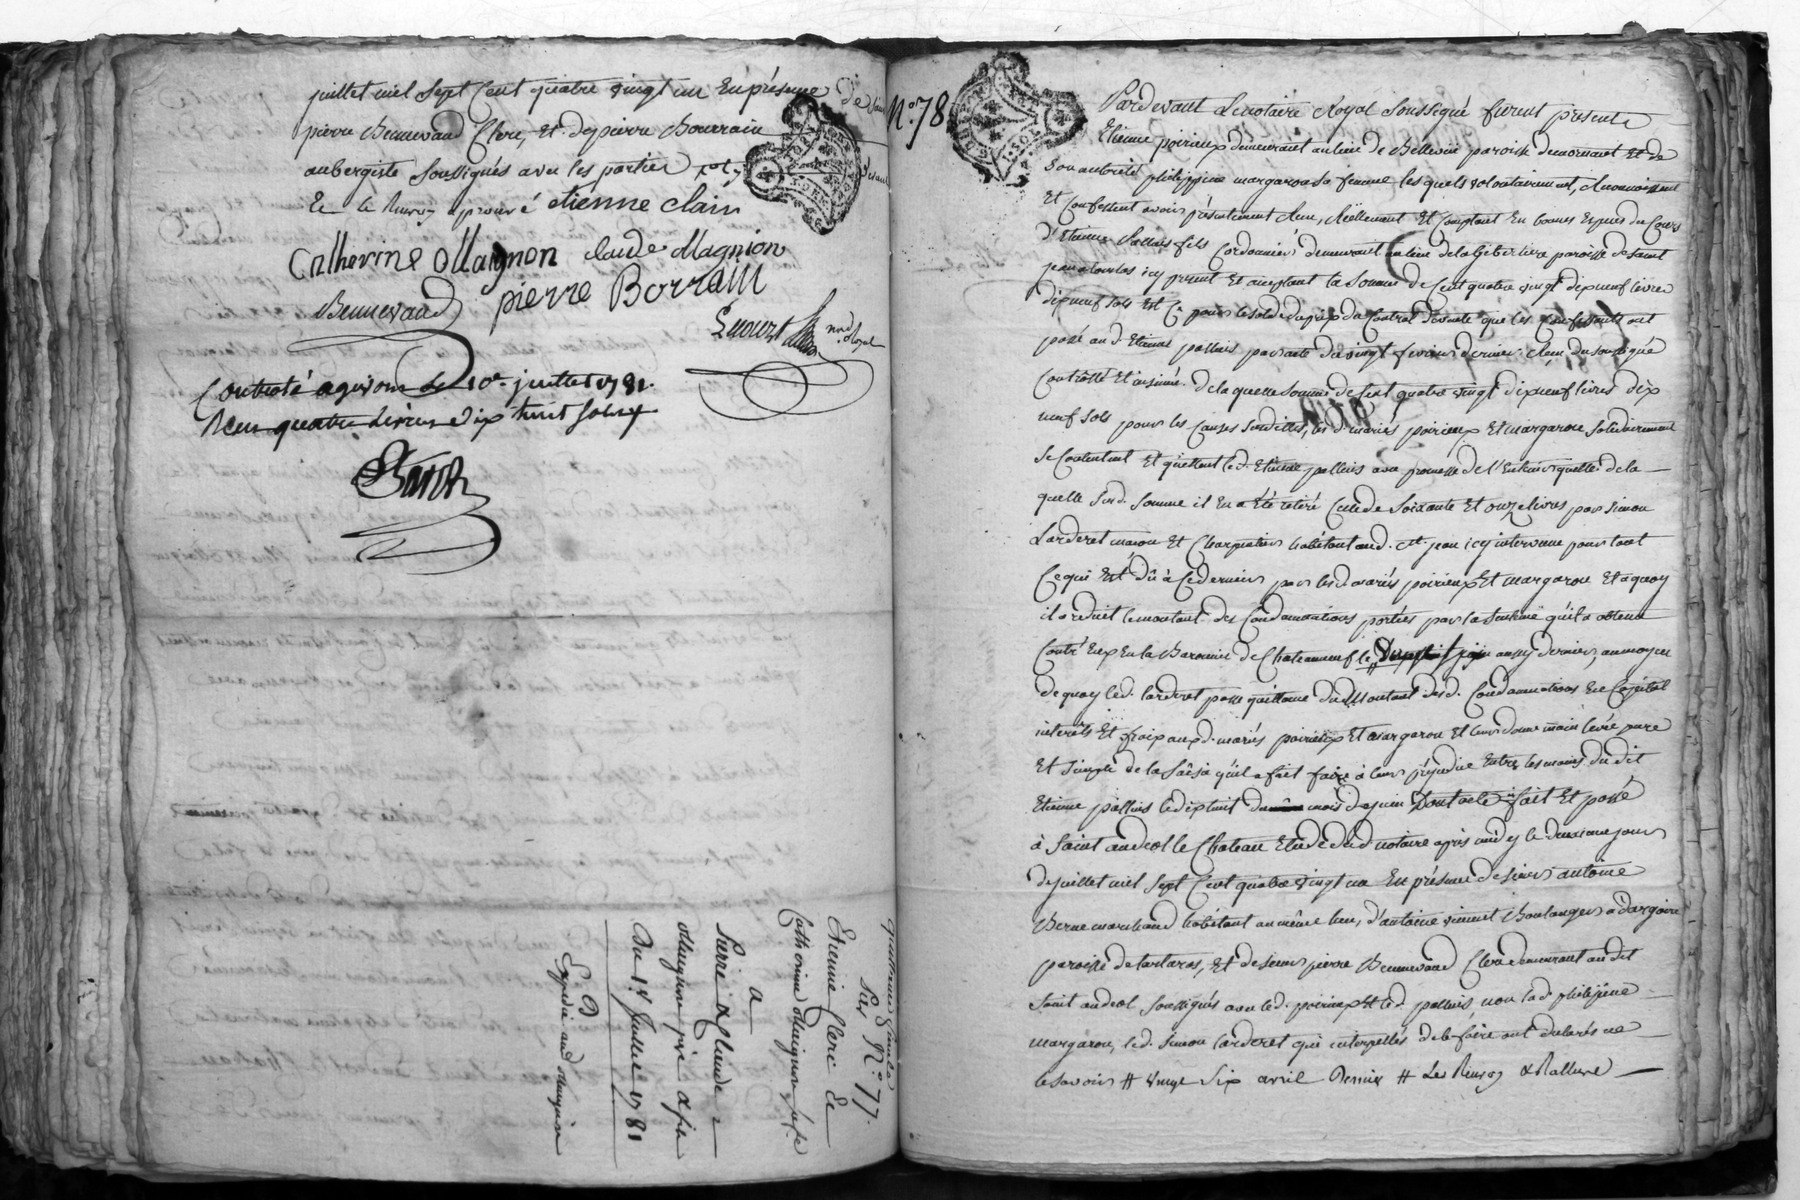 juillet mil sept Cent quatre vingt un En présence de sieur
pierre Bennevaud Clerc, Et de pierre Bourrain
aubergiste soussignés avec les parties
Et le Renvoy aprouvé etienne clair
Catherine Maignon claude Magnion
Bennevaud pierre Borrain
not. Royal
Controlé a givors Le 10e. juillet 1781.
Reçu quatre livres dix huit sols
quittance finale
Sur N.° 77.
Etienne Clerc Et
Catherine Maignon sa fe
a
Pierre & Claude
Magnion pere & fils
Du 1r Juillet 1781
Expedié aud Magnion
N.° 78
Pardevant Le notaire Royal Soussigné furent présents
Etienne poirieux demeurant au lieu de Bellevue paroisse de mornant Et de
Son autorité philippine margaron sa femme les quels volontairement, Reconnoissent
Et Confessent avoir présentement Reçu, Réellement Et Comptant En bonnes Espèces du Cours
d'Etienne pallais fils Cordonnier demeurant au lieu de la Giberliere paroisse de Saint
jean a toulas icy présent Et acceptant la Somme de Cent quatre vingt dixneuf livres
dixneuf sols Et Ce pour le solde du prix du Contrat de vente que les Confessants ont
passé aud. Etienne pallais par acte du vingt fevrier dernier Reçu du soussigné
Controllé Et insinué. De laquelle Somme de Cent quatre vingt dixneuf livres dix
neuf sols pour les Causes Susdittes, les d. mariés poirieux Et margaron Solidairement
Se Contentent Et quittent led. Etienne pallais avec promesse de l'En faire quitte. de la
quelle Susd. Somme il En a été retiré Celle de Soixante Et onze livres par Simon
Larderet maçon Et Charpentier habitant aud. St. jean icy intervenu pour tout
Ce qui Est dû à Ce dernier par lesd. mariés poirieux Et margaron Et a quoy
il a réduit le montant des Condamnations portées par la Sentence qu'il a obtenu
Contr'Eux En la Baronnie de Chateauneuf le # aussy dernier, au moyen
de quoy led. larderet passe quittance du Montant desd. Condamnations En Capital
intérêts Et fraix auxd. mariés poirieux Et margaron Et leur donne main levée pure
Et Simple de la Saisie qu'il a fait faire à leur préjudice Entre les mains du dit
Etienne pallais le dixhuit du mois de juin Dont acte fait Et passé
à Saint andeol le Chateau Etude dud notaire après midy le deuxieme jour
de juillet mil sept Cent quatre vingt un En présence de sieur antoine
Berne marchand habitant au même lieu, d'antoine vincent Boulanger a dargoire
paroisse de tartaras, Et de sieur pierre Bennevaud Clerc demeurant au dit
Saint andeol Soussignés avec led. poirieux Et led. pallais, non lad. philippine
margaron, led. Simon larderet qui interpellés de le faire ont déclarés ne
le savoir # vingt Six avril Dernier # Les Renvoy & Rallure